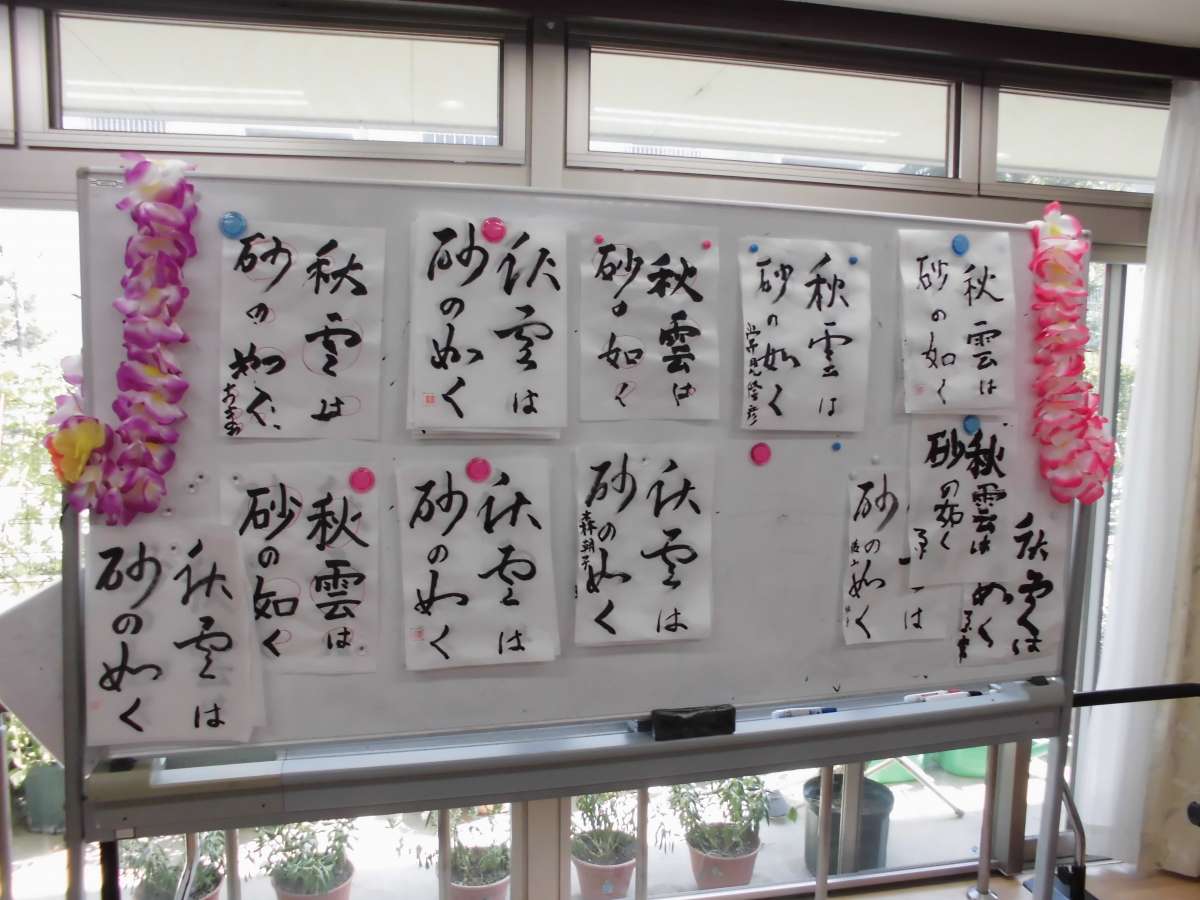 秋雲は
砂の如く
秋雲は
砂の如く
秋雲は
砂の如く
秋雲は
砂の如く
秋雲は
砂の如く
秋雲は
砂の如く
秋雲は
砂の如く
秋雲は
砂の如く
秋雲は
砂の如く
は
砂の如く
秋雲は
砂の如く
秋雲は
如く